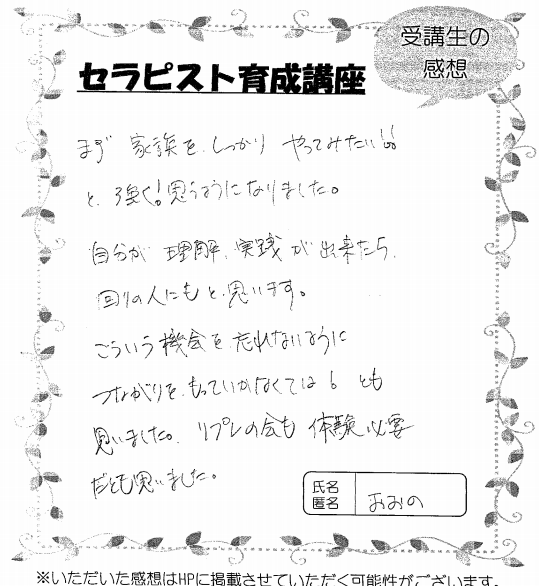 受講生の
感想
セラピスト育成講座
まず 家族を、しっかり やってみたい!!
と、強く!思うようになりました。
自分が 理解、実践が出来たら、
回りの人にもと、思います。
こういう機会を、忘れないように
つながりを、もっていかなくては! とも
思いました。リプレの会も 体験必要
だとも思いました。
氏名
匿名
おおの
※いただいた感想はHPに掲載させていただく可能性がございます。